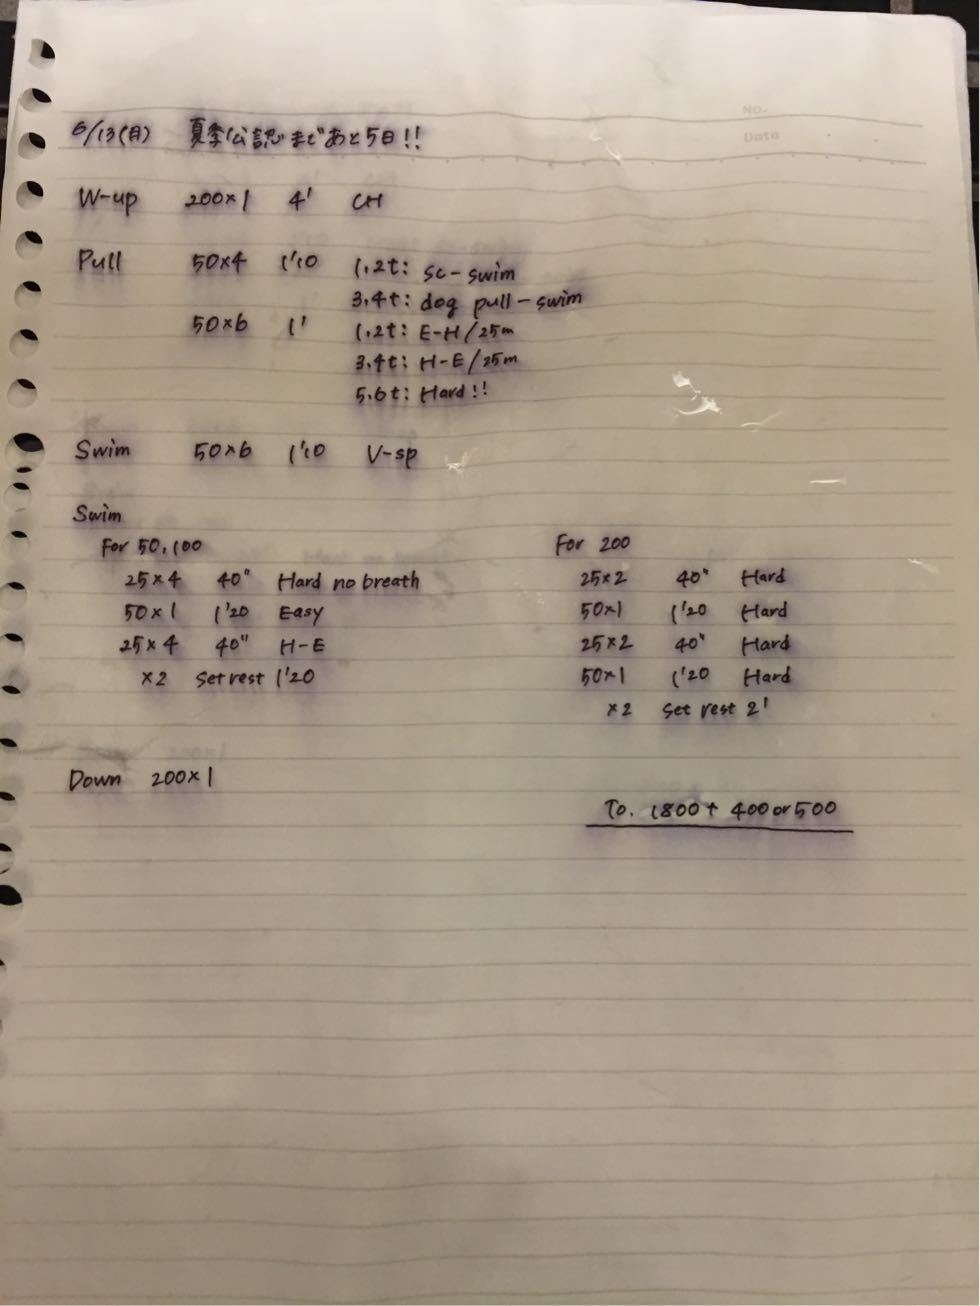 NO.
Date
6/13(月) 夏季公認まであと5日!!
W-up 200×1 4' CH
Pull 50×4 1'10 1.2t: sc-swim
3.4t: dog pull-swim
50×6 1' 1.2t: E-H/25m
3.4t: H-E/25m
5.6t: Hard!!
Swim 50×6 1'10 V-sp
Swim
For 50.100
25×4 40" Hard no breath
50×1 1'20 Easy
25×4 40" H-E
×2 set rest 1'20
For 200
25×2 40" Hard
50×1 1'20 Hard
25×2 40" Hard
50×1 1'20 Hard
×2 set rest 2'
Down 200×1
To. 1800+ 400 or 500